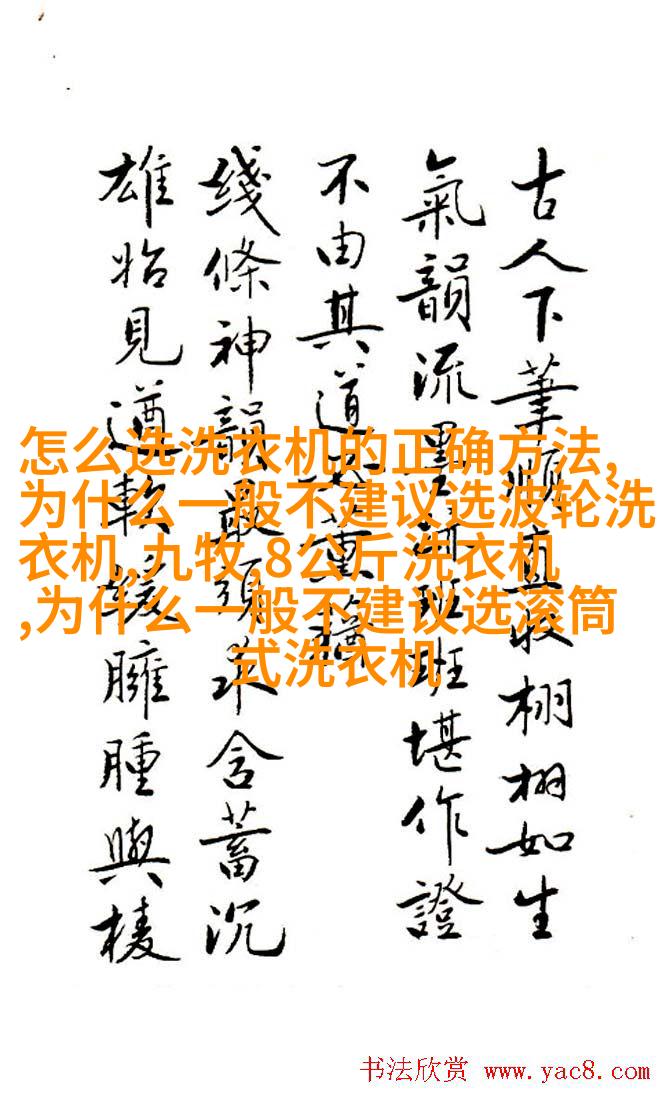 古人下筆直收栩栩如生
氣韻流墨班班堪作證
不由其道
綫條神韻最須求含蓄沉
雄始見遒軟緩臃腫與棱
怎么选洗衣机的正确方法,
为什么一般不建议选波轮洗
衣机,九牧,8公斤洗衣机
,为什么一般不建议选滚筒
式洗衣机
书法欣赏 www.yac8.com